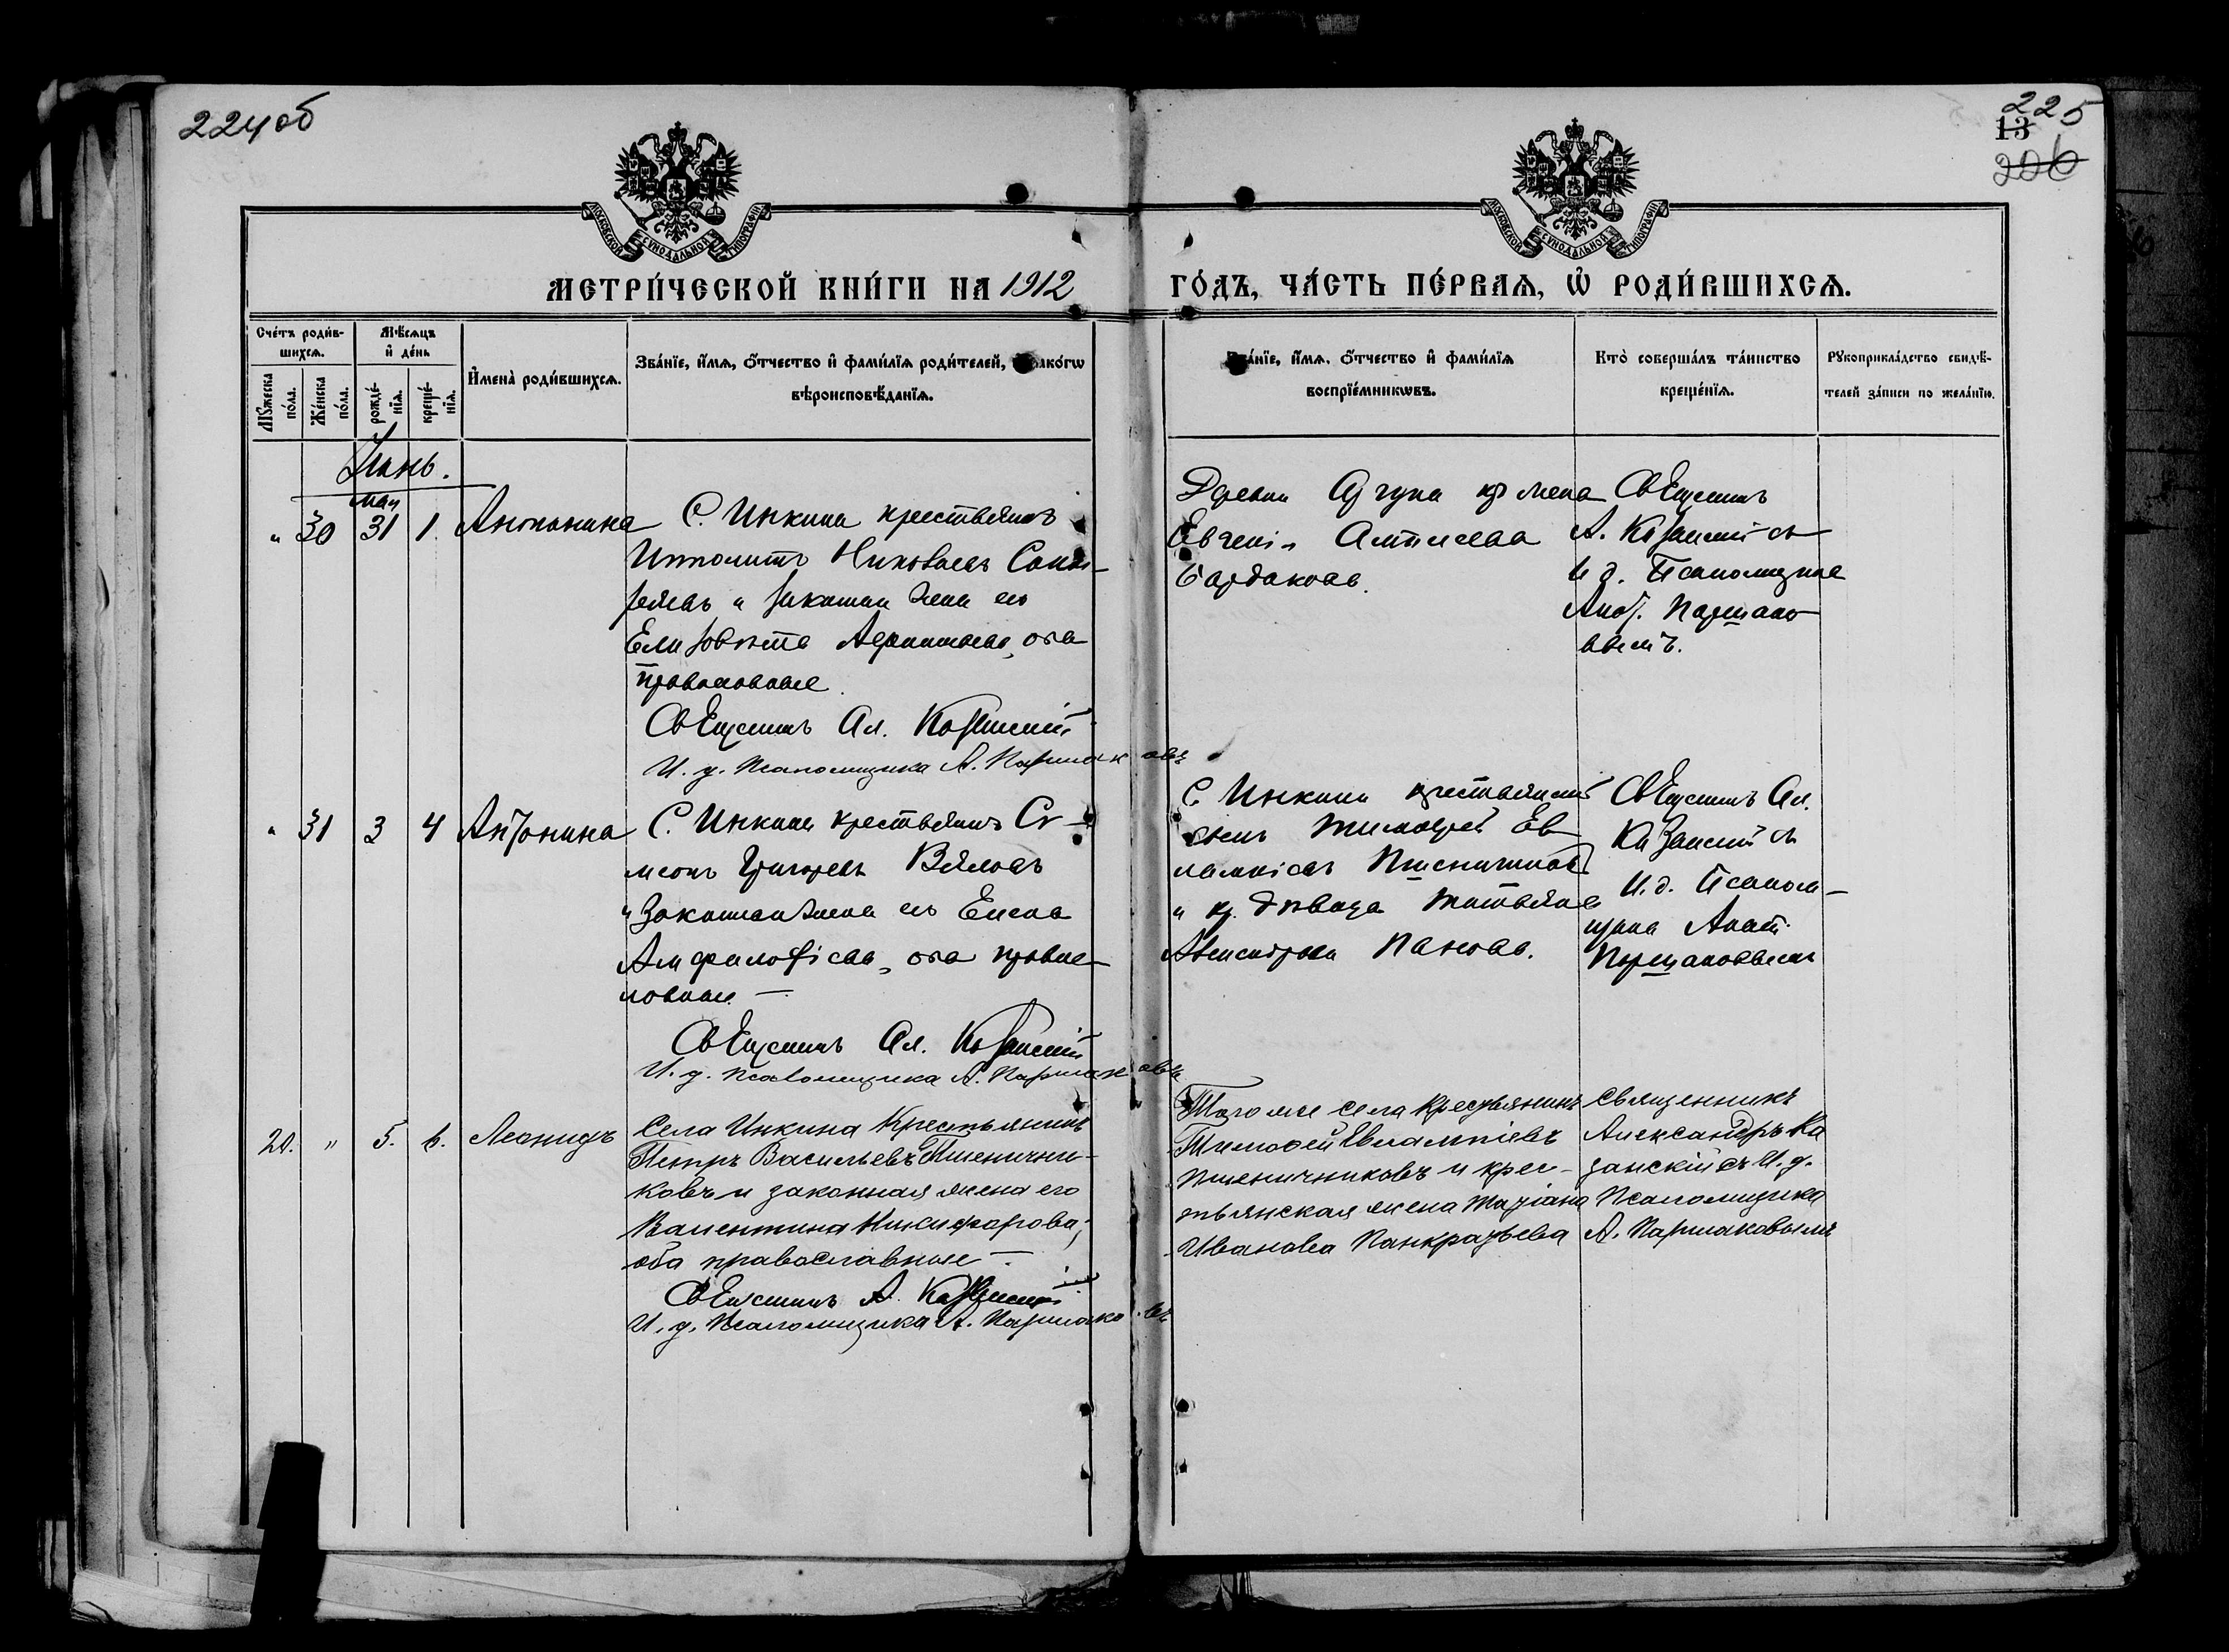 224об
225
13
206
МОСКОВСКОЙ СѴНОДАЛЬНОЙ ТИПОГРАФІИ
МОСКОВСКОЙ СѴНОДАЛЬНОЙ ТИПОГРАФІИ
МЕТРИ́ЧЕСКОЙ КНИ́ГИ НА 1912
ГО́ДЪ, ЧА́СТЬ ПЕ́РВАѦ, Ѡ҆ РОДИ́ВШИХСѦ.
Сче́тъ роди́в-
шихсѧ.
Мꙋжеска
по́ла.
Же́нска
по́ла.
Мѣ́сѧцъ
и҆ де́нь
рожде́-
нїѧ.
креще́-
нїѧ.
И҆мена̀ роди́вшихсѧ.
Зва́нїе, и҆́мѧ, ѻ҆́тчество и҆ фами́лїѧ роди́телей, и҆ какѡ́гѡ
вѣроисповѣ́данїѧ.
Зва́нїе, и҆́мѧ, ѻ҆́тчество и҆ фами́лїѧ
воспрїе́мникѡвъ.
Кто̀ соверша́лъ та́инство
креще́нїѧ.
Рꙋкоприкла́дство свидѣ́-
телей за́писи по жела́нїю.
Іюнь.
мая
" 30 31 1. Антонина
С. Инкина крестьянинъ
Ипполитъ Николаевъ
и законная жена его
Елизавета оба
православные.
Священникъ Ал. Казанскій
И. д. псаломщика А. Паршаковъ
Деревни кр жена
Евгенія
Бардакова.
Священникъ
А. Казанскій съ
и д. Псаломщика
Паршако-
вымъ.
" 31 3 4 Антонина
С. Инкина крестьянинъ Си-
меонъ Григорьевъ Вяловъ
и законная жена его Елена
Амфилофіева, оба правос-
лавные. —
Священникъ Ал. Казанскій
И. д. псаломщика А. Паршаковъ
С. Инкина крестьянскій
сынъ Тимофей Ев-
лампіевъ Пшеничников
и кр. дѣвица Татьяна
Александрова Панова.
Священникъ Ал.
Казанскій съ
И. д. Псалом-
щика
Паршаковымъ
20. " 5. 6. Леонидъ
Села Инкина Крестьянинъ
Петръ Васильевъ Пшенични-
ковъ и законная жена его
Валентина Никифорова,
оба православные —.
Священникъ А. Казанскій
И. д. Псаломщика А. Паршаковъ
Того же села Крестьянинъ
Тимофей Евлампіевъ
Пшеничниковъ и крес-
тьянская жена Маріана
Иванова Панкратьева
Священникъ
Александръ Ка
занскій съ И. д.
Псаломщика
А. Паршаковымъ